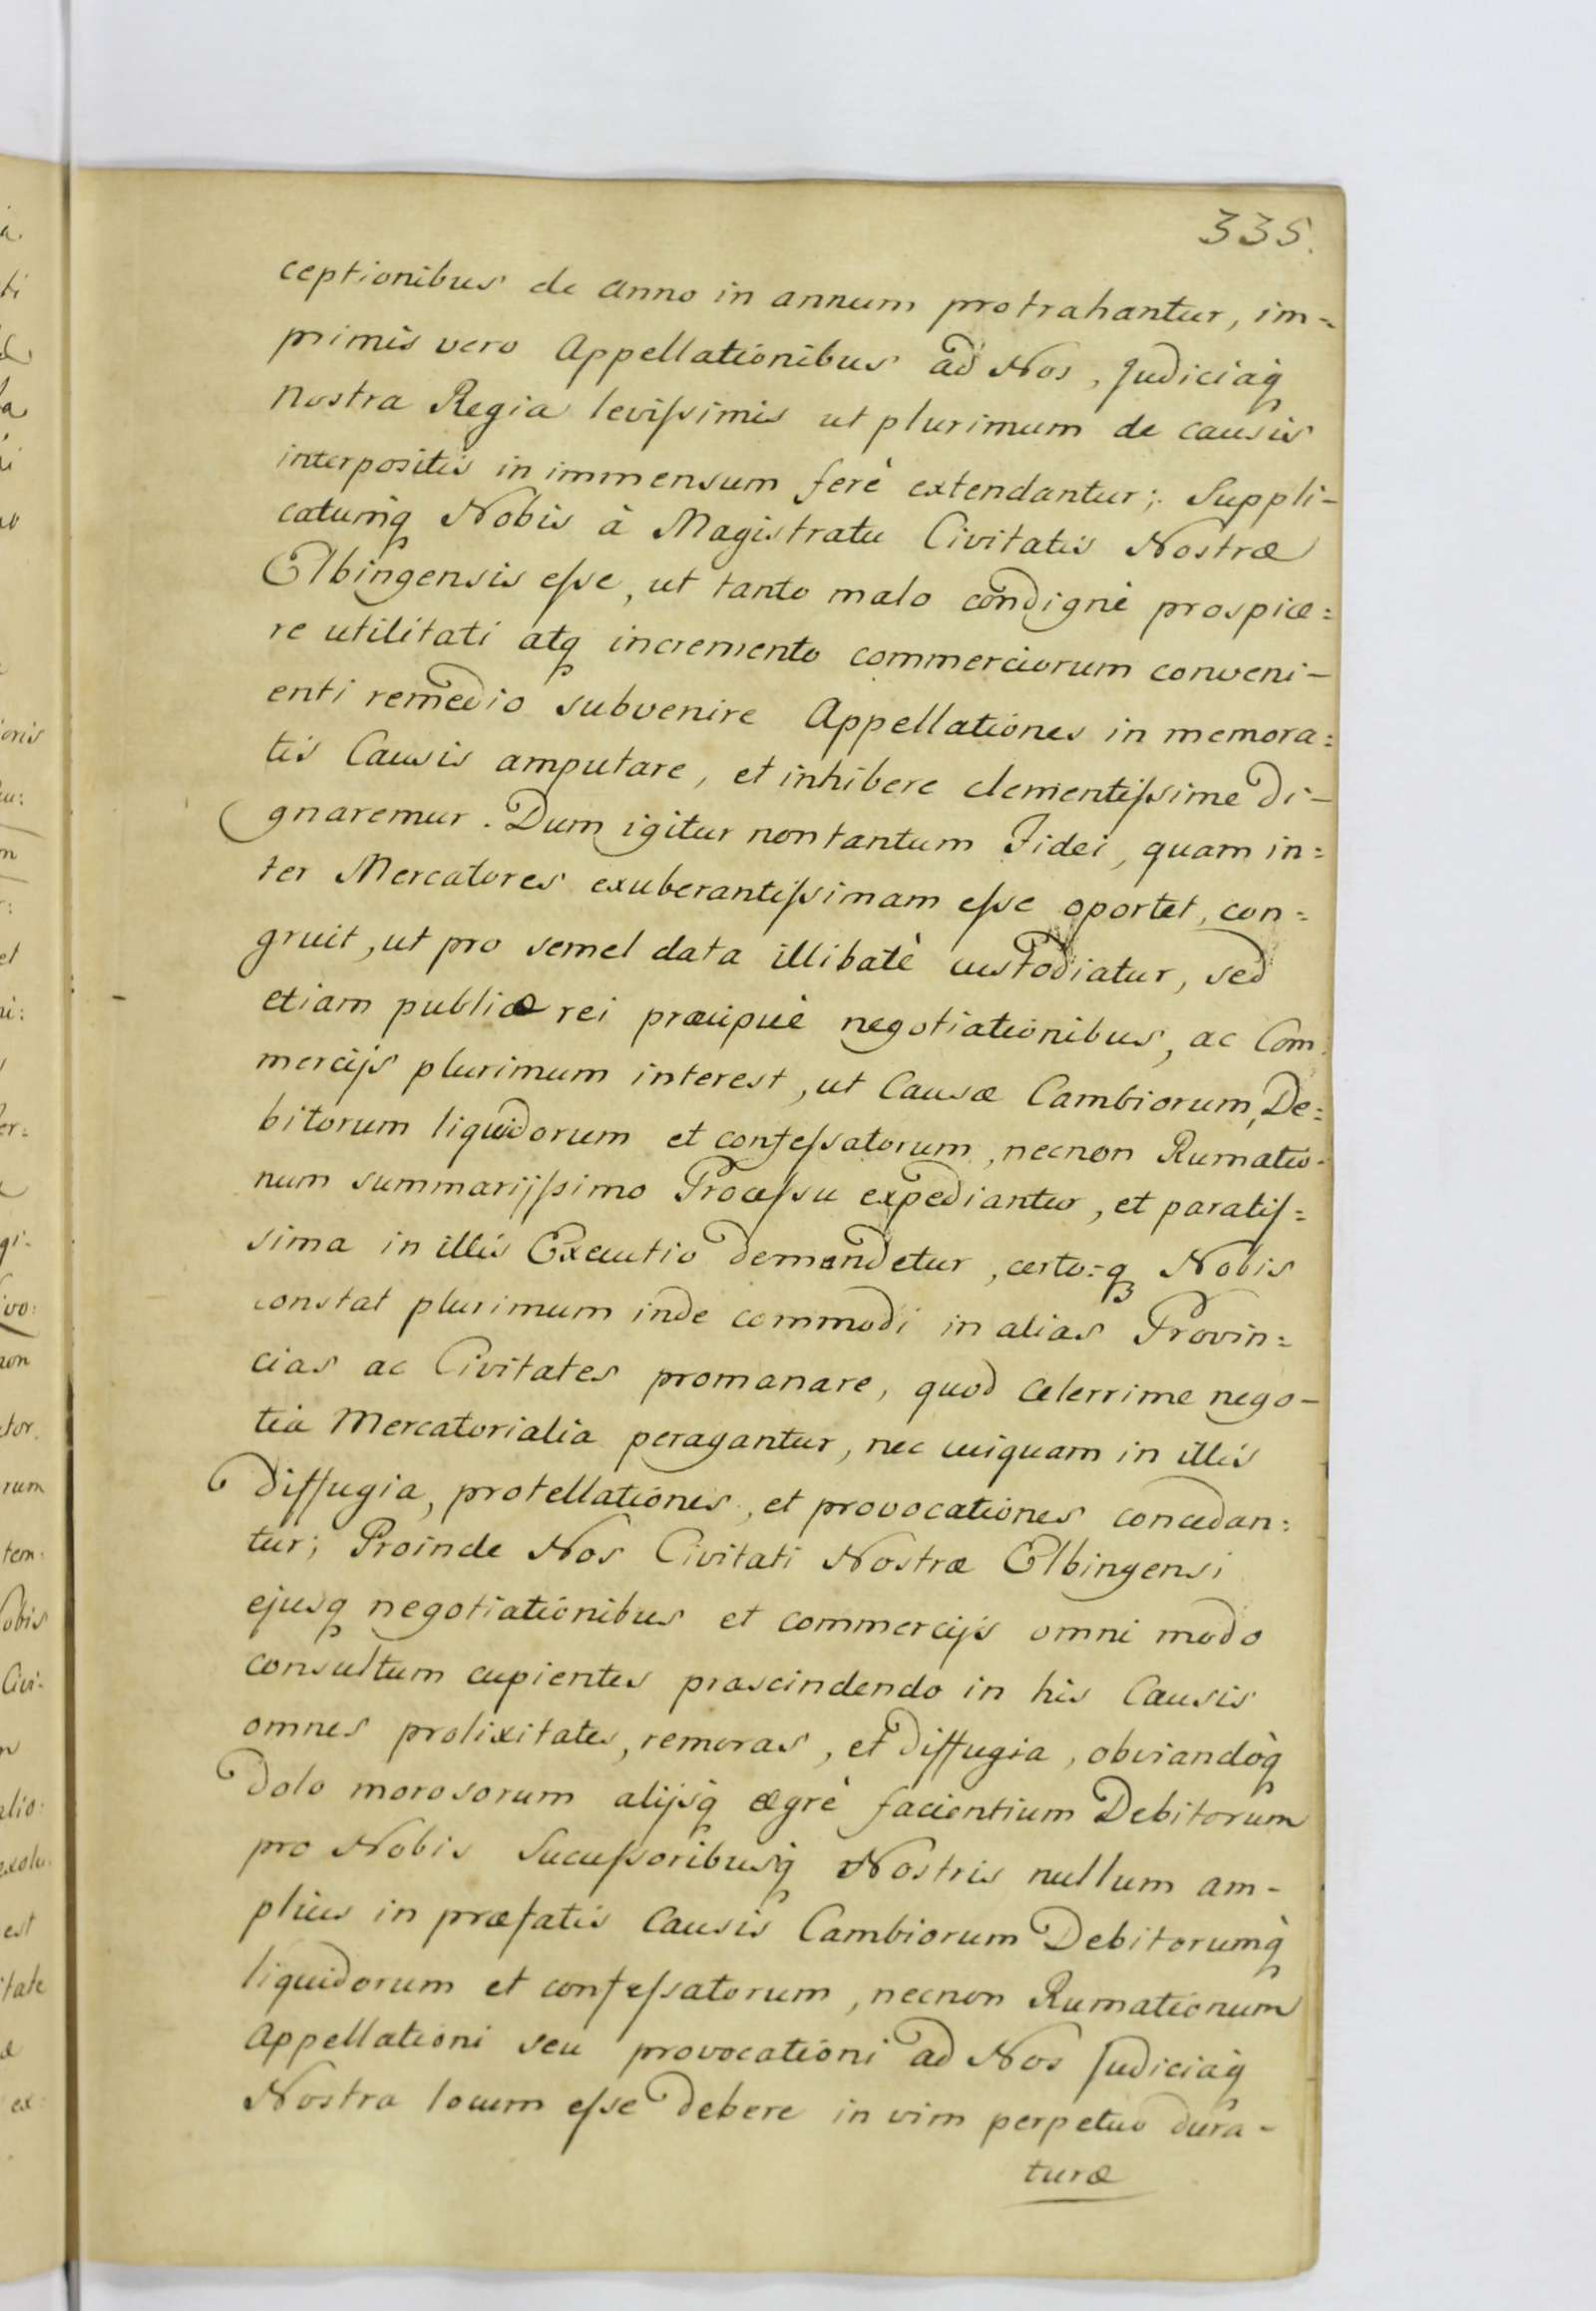 335.
ceptionibus de anno in annum protrahantur, im=
primis vero Appellationibus ad Nos, Judiciaq
Nostra Regia levissimis ut plurimum de causis
interpositis in immensum ferè extendantur; Suppli-
catumq Nobis à Magistratu Civitatis Nostræ
Elbingensis esse, ut tanto malo condignè prospice=
re utilitati atq incremento commerciorum conveni-
enti remedio subvenire Appellationes in memora=
tis Causis amputare, et inhibere clementissime di-
gnaremur. Dum igitur non tantum Fidei, quam in=
ter Mercatores exuberantissimam esse oportet, con=
gruit, ut pro semel data illibatè custodiatur, sed
etiam publicæ rei præcipuè negotiationibus, ac Com
mercijs plurimum interest, ut Causæ Cambiorum, De=
bitorum liquidorum et confessatorum, necnon Rumatio-
num summarijssimo Processu expediantur, et paratis=
sima in illis Executio demandetur, certo=q Nobis
constat plurimum inde commodi in alias Provin=
cias ac Civitates promanare, quod celerrime nego-
tia Mercatorialia peragantur, nec cuiquam in illis
diffugia, protellationes, et provocationes concedan=
tur; Proinde Nos Civitati Nostræ Elbingensi
ejusq negotiationibus et commercijs omni modo
consultum cupientes præscindendo in his Causis
omnes prolixitates, remoras, et diffugia, obviandoq
dolo morosorum alijsq ægrè facientium Debitorum
pro Nobis Sucessoribusq Nostris nullum am-
plius in præfatis Causis Cambiorum Debitorumq
liquidorum et confessatorum, necnon Rumationum
Appellationi seu provocationi ad Nos Judiciaq
Nostra locum esse debere in vim perpetuo dura-
turæ